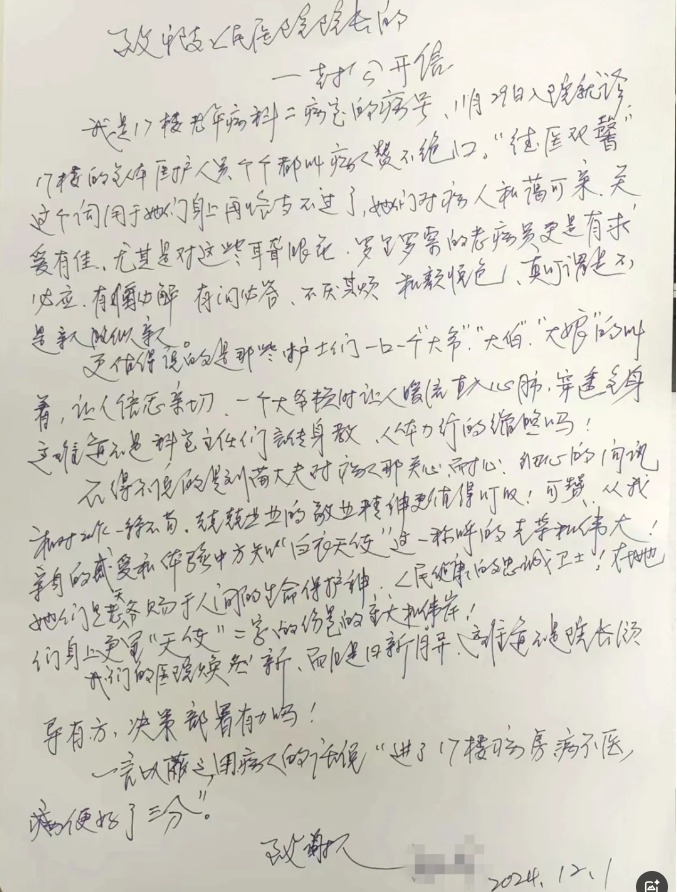 致市人民医院院长的
一封公开信
我是17楼老年病科二病室的病号，11月29日入院就诊，
17楼的全体医护人员个个都叫病人赞不绝口。“德医双馨”
这个词用于她们身上再恰当不过了，她们对病人和蔼可亲、关
爱有佳。尤其是对这些耳聋眼花、罗里罗索的老病员更是有求
必应、有惑必解 有问必答、不厌其烦 和颜悦色，真可谓是不
是亲人胜似亲
更值得说的是那些护士们一口一个“大爷”、“大伯”、“大娘”的叫
着，让人倍感亲切，一个大爷顿时让人暖流直入心肺，穿透全身
这难道不是科室主任们言传身教、人体力行的缩影吗！
不得不说的是刘 大夫对病人那关心、耐心、细心的问讯
和对工作一丝不苟、兢兢业业的敬业精神更值得可赞，从我
亲身的感受和体验中方知“白衣天使”这一称呼的光荣和伟大！
她们是天 赐于人间的生命保护神、人民健康的忠诚卫士！在她
们身上更显“天使”二字的份量的重大和伟岸！
我们的医院焕然一新、而且是日新月异、这难道不是院长领
导有方、决策部署有力吗！
一言以蔽之，用病人的话说“进了17楼病房病不医，
病便好了三分”。
致谢人
2024.12.1